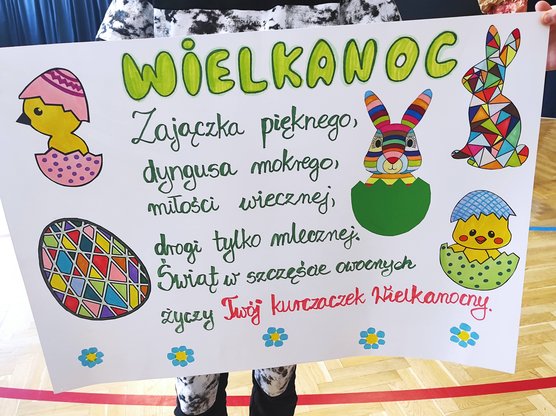 WIELKANOC
Zajączka pięknego,
dyngusa mokrego,
miłości wiecznej,
drogi tylko mlecznej.
Świąt w szczęście owocnych
życzy Twój kurczaczek Wielkanocny.